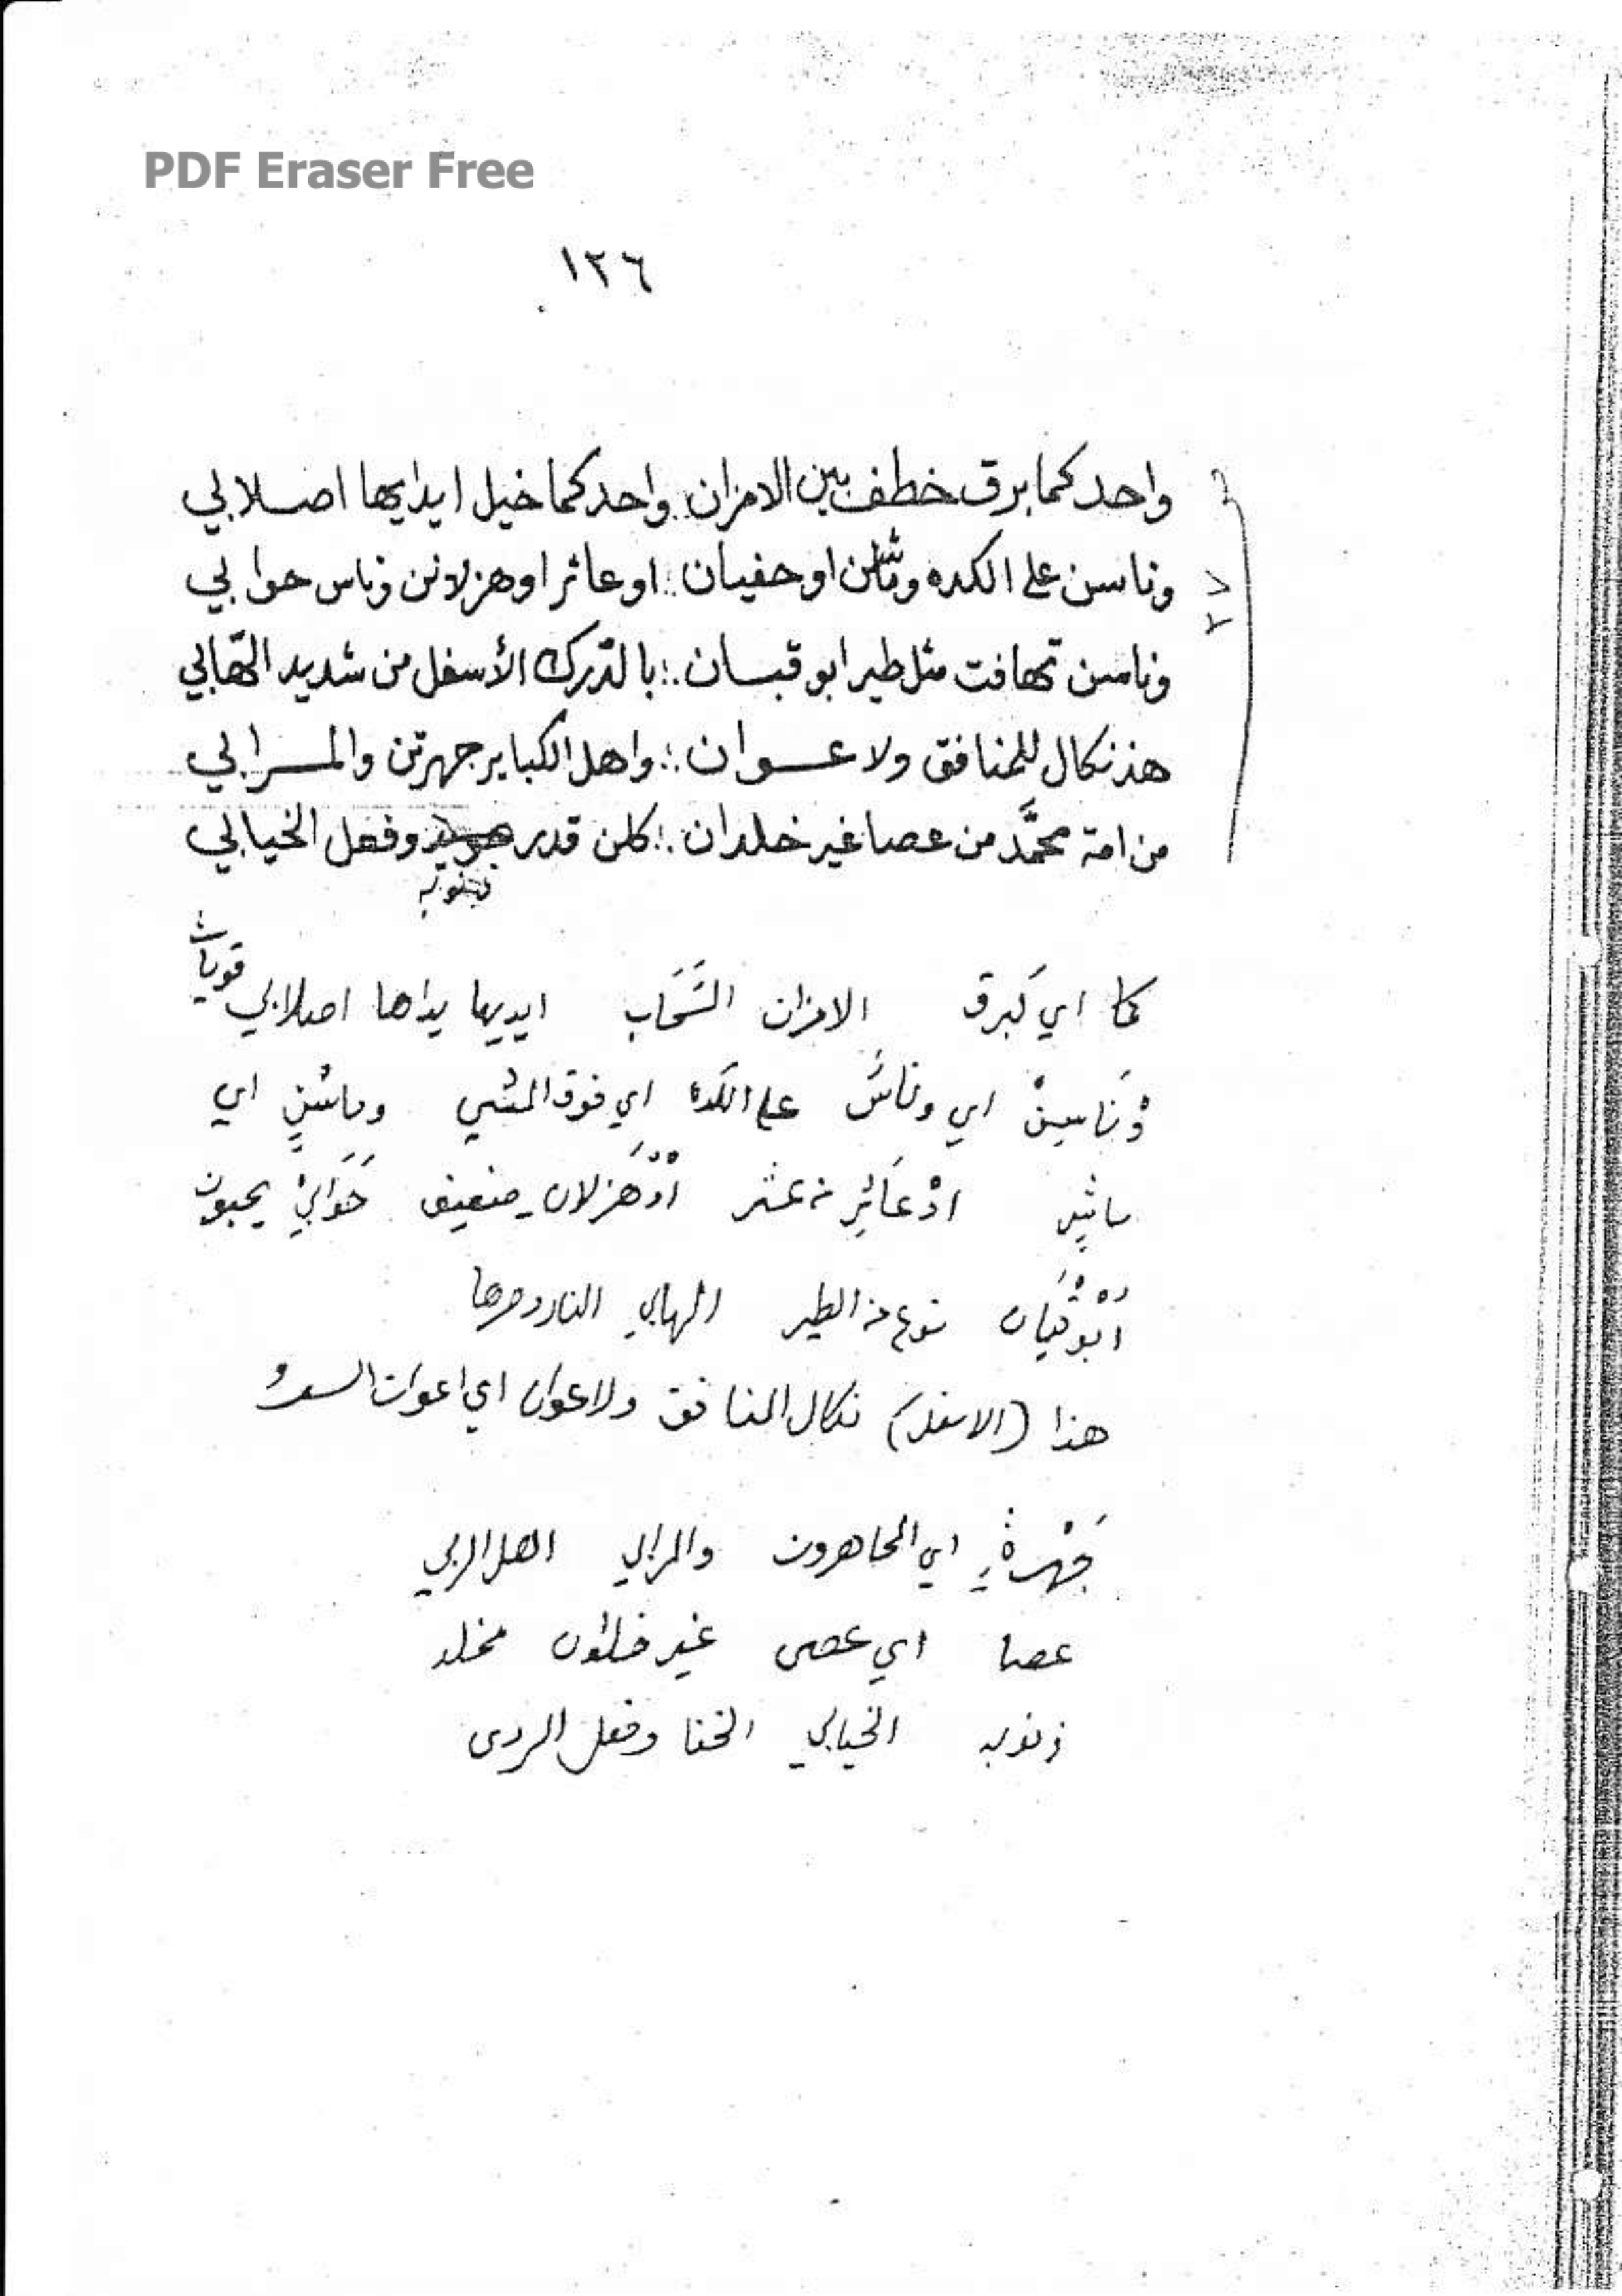 PDF Eraser Free
١٢٦
واحد كما برق خطف بين الامزان .: واحد كما خيل ايدايها اصلابي
وناسن على الكده وماشن او حفيان .: اوعاثر اوهزلانن وناس حوابي
وناسن تهافت مثل طير ابو قبسان .: بالدرك الأسفل من شديد التهابي
هذ نكال للمنافق ولا عوان .: واهل الكباير جهرتن والمرابي
من امة محمَّد من عصا غير خلدان .: كلن قدر وفعل الخيابي
ذنوبه
قويات
كما اي كَبرق الامزان السَّحَاب ايديها يداها اصلابي
وْنَاسِنْ اي وناسٌ على الكده اي فوق المشي وماشنٍ اي
ماشٍ اوْعَاثِر من عثر اوْهَزلان ضعيف حَوَابيْ يحبون
ابْوقبسان نوع من الطير الهابي النار وحرها
هذا (الاسفل) نكال المنافق ولاعوان اي اعوان السوء
جَهْرةٍ اي المجاهرون والمرابي اهل الربى
عصا اي عصى غير خلدان مخلد
ذنوبه الخيابي الخنا وفعل الردى